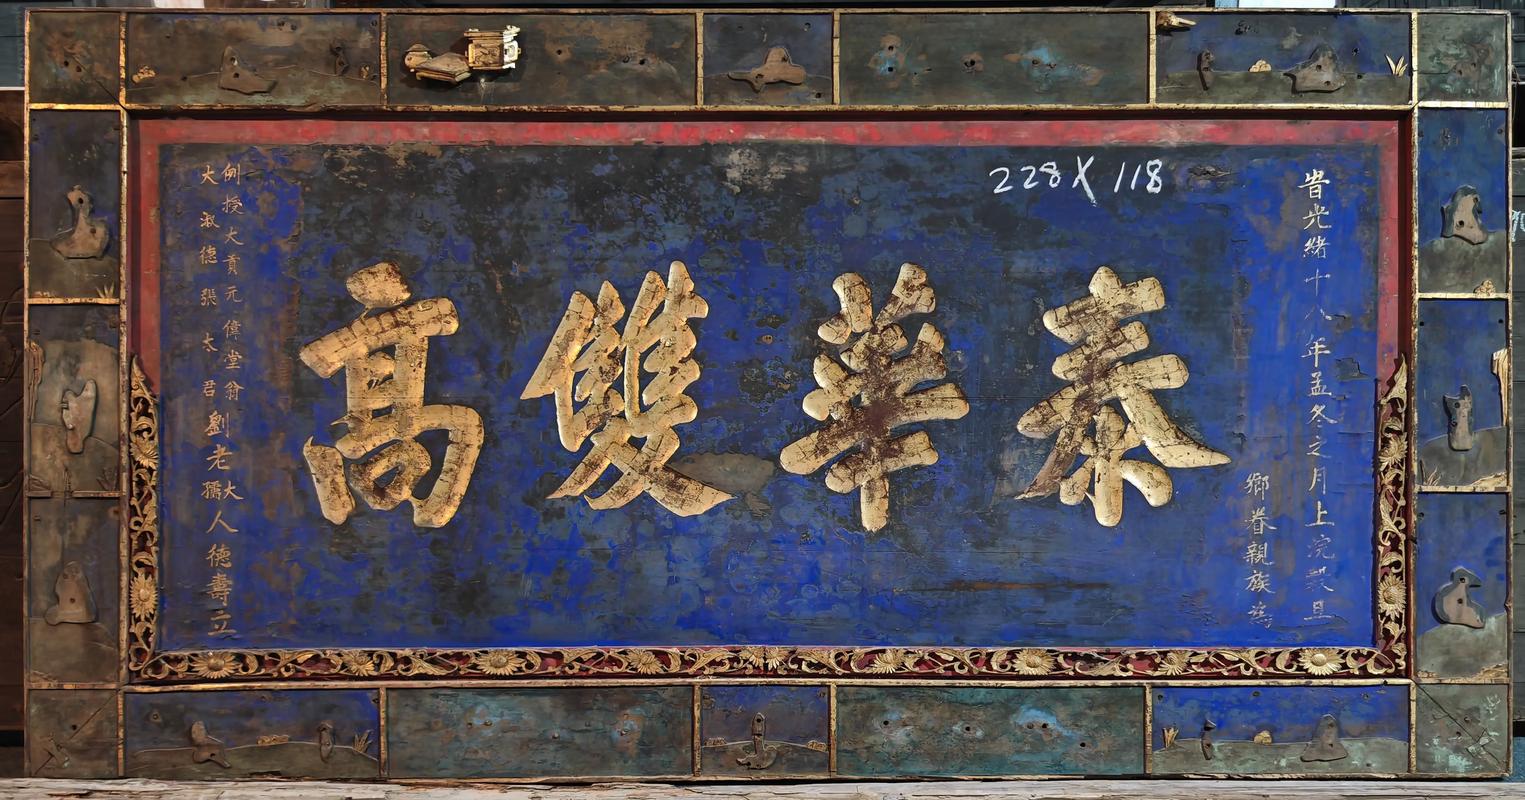 旹光緒十八年孟冬之月上浣穀旦
鄉眷親族為
泰華雙高
例授大貢元偉堂翁
大淑德張太君
劉老大孺人德壽立
228X118